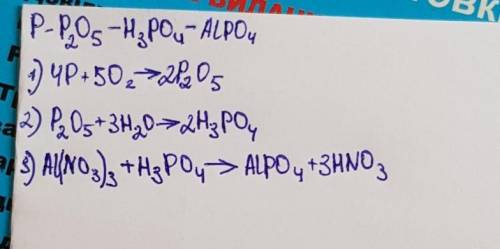 P-P₂O₅-H₃PO₄-AlPO₄
1) 4P+5O₂→2P₂O₅
2) P₂O₅+3H₂O→2H₃PO₄
3) Al(NO₃)₃+H₃PO₄→AlPO₄+3HNO₃